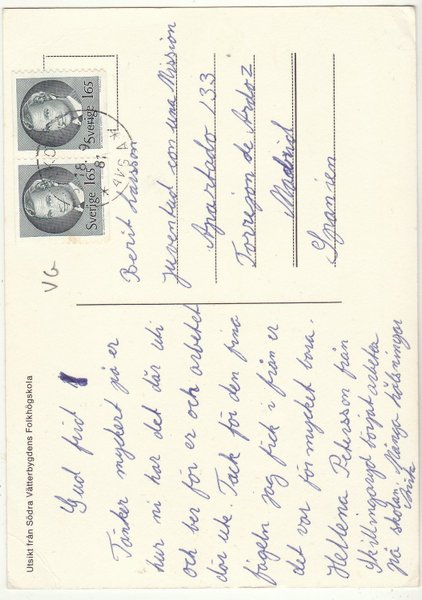 Utsikt från Södra Vätterbygdens Folkhögskola
Gud frid
Tänker mycket på er
hur ni har det där ute
och ber för er och arbetet
där ute. Tack för den fina
fågeln jag fick i från er
det var för mycket bara.
Hellena Petersson från
Skillingaryd börjat arbeta
på skolan. Många hälsningar
VG
Sverige 165
Sverige 165
Berit Larsson
Juventud con una Mission
Apartado 133
Torrejon de Ardoz
Madrid
Spanien